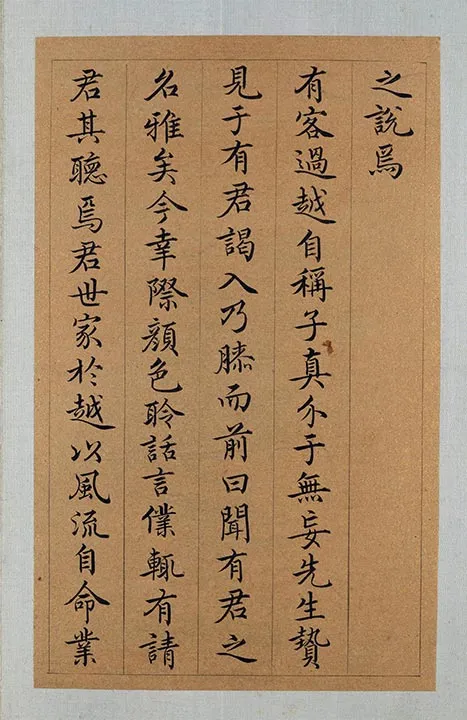 之說焉
有客過越自稱子真介于無妄先生贄
見于有君謁入乃膝而前曰聞有君之
名雅矣今幸際顏色聆話言僕輒有請
君其聽焉君世家於越以風流自命業